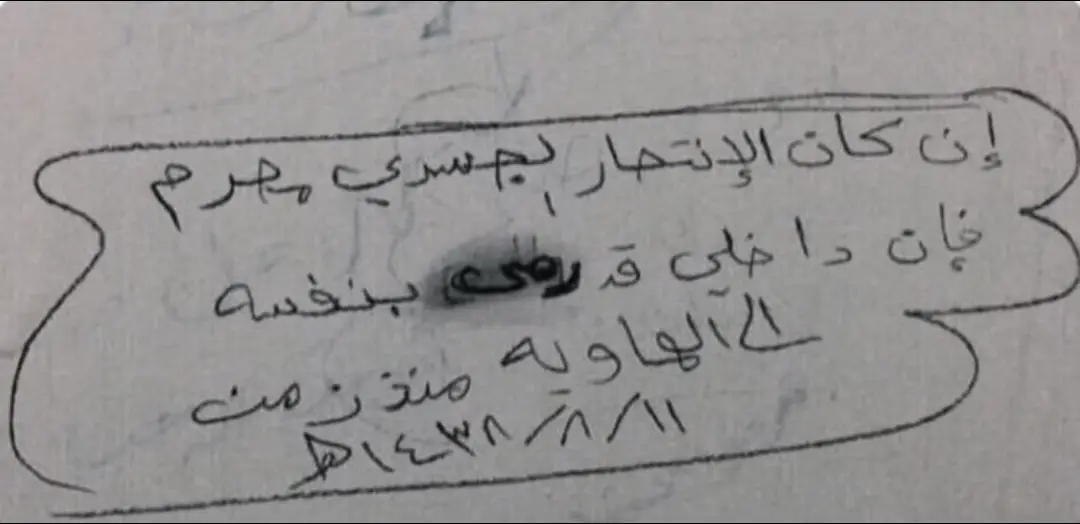 إن كان الإنتحار بجسدي محرم
فإن داخلي قد رمى بنفسه
الى الهاويه منذ زمن
١٤٣٨/٨/١١ه